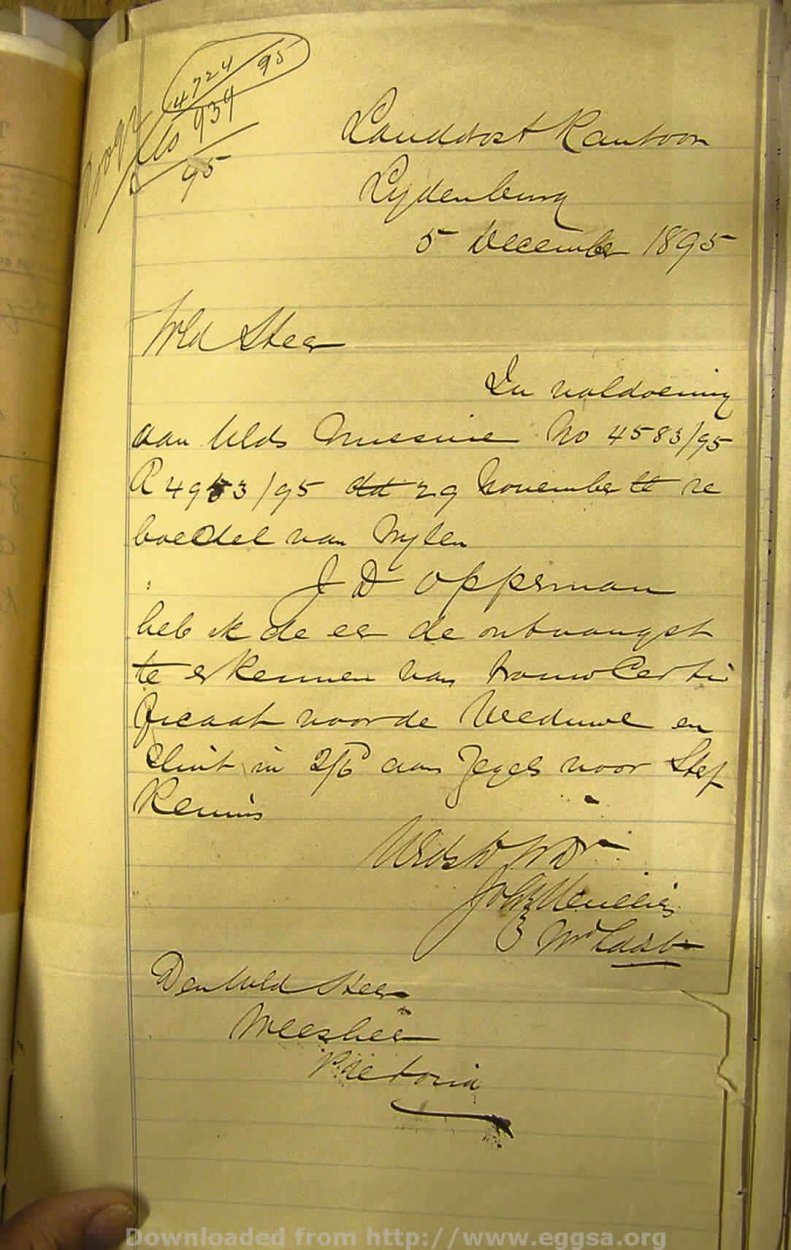 4724
95
939
95
Landdrost Kantoor
Lydenburg
5 December 1895
WEd Heer
In voldoening
aan UEds Missive No 4583/95
R 4953/95 dd 29 November ll re
boedel van Wylen
J D Opperman
heb ik de eer de ontvangst
te erkennen van trouw Certi
ficaat voor de Weduwe en
sluit in 2/6 aan Zegels voor Sterf
Kennis
UEds D W Dr
Wd Lddst
Den WEd Heer
Weesheer
Pretoria
Downloaded from http://www.eggsa.org